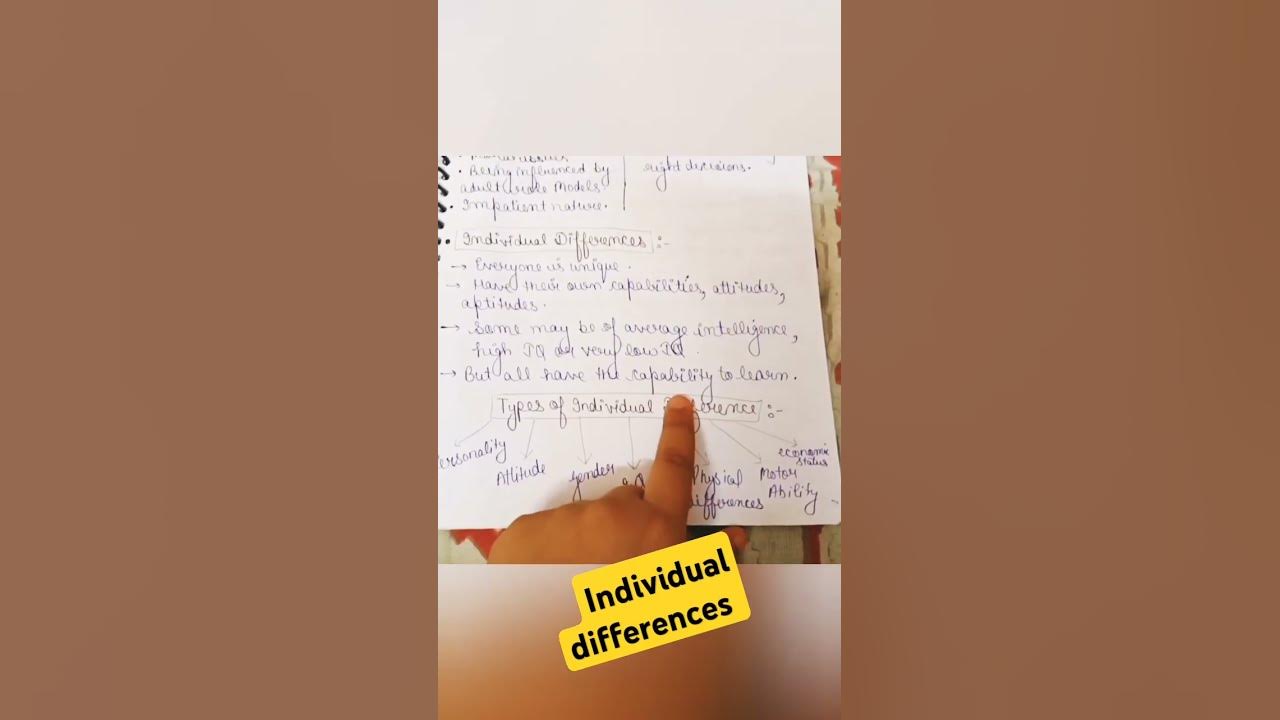 • Being influenced by
adult role Models.
• Impatient nature.
right decisions.
• Individual Differences :-
→ Everyone is unique.
→ Have their own capabilities, attitudes,
aptitudes.
→ Some may be of average intelligence,
high IQ or very low IQ.
→ But all have the capability to learn.
Types of Individual :-
ersonality
Attitude
Gender
Physical
ifferences
Motor
Ability
economic
status
Individual
differences